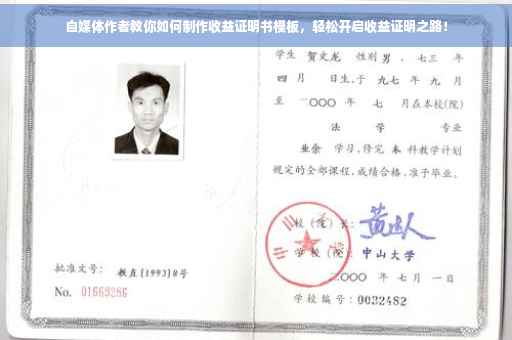 自媒体作者教你如何制作收益证明书模板，轻松开启收益证明之路！
学生 贺文龙 性别 男，七三 年
四 月 日生，于 九七 年 九 月
至 二〇〇〇 年 七 月在本校(院)
法 学 专业
业余 学习，修完 本 科教学计划
规定的全部课程，成绩合格，准予毕业。
校 (院) 长：
学 校 (院)： 中山大学
二〇〇〇 年 七 月 一 日
学校编号：0032482
批准文号： 教直[1993]8号
No. 01669286